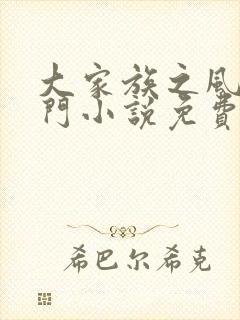 大家族之風
門小說免費
希巴尔希克